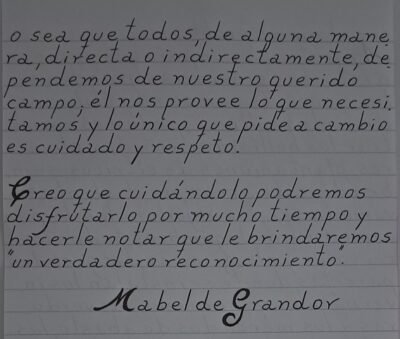 o sea que todos, de alguna mane
ra, directa o indirectamente, de
pendemos de nuestro querido
campo; él nos provee lo que necesi.
tamos y lo único que pide a cambio
es cuidado y respeto.
Creo que cuidándolo podremos
disfrutarlo por mucho tiempo y
hacerle notar que le brindaremos
"un verdadero reconocimiento".
Mabel de Grandor